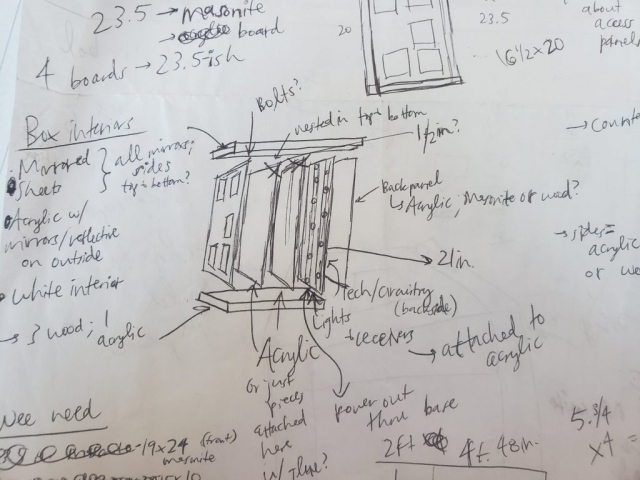 23.5 → Masonite
→ board
4 boards → 23.5ish
20
23.5
16 1/2 x 20
about
access
panels
Box interiors
Bolts?
nested in top & bottom
1 1/2 in?
• Mirrored
• Sheets
all mirrors;
sides
top & bottom?
• Acrylic w/
mirrors/reflective
on outside
• White interior
→ 3 wood; 1
acrylic
Back panel
↳ Acrylic, Masonite or wood?
→ 2 in.
Tech/circuitry
(backside)
Lights
→ attached to
acrylic
→ sides =
acrylic
or
Acrylic
or just
pieces
attached
here
w/ glue?
power out
thru base
need
19x24 (front)
masonite
2ft
4ft. 48in.
5. 3/4
x4 =